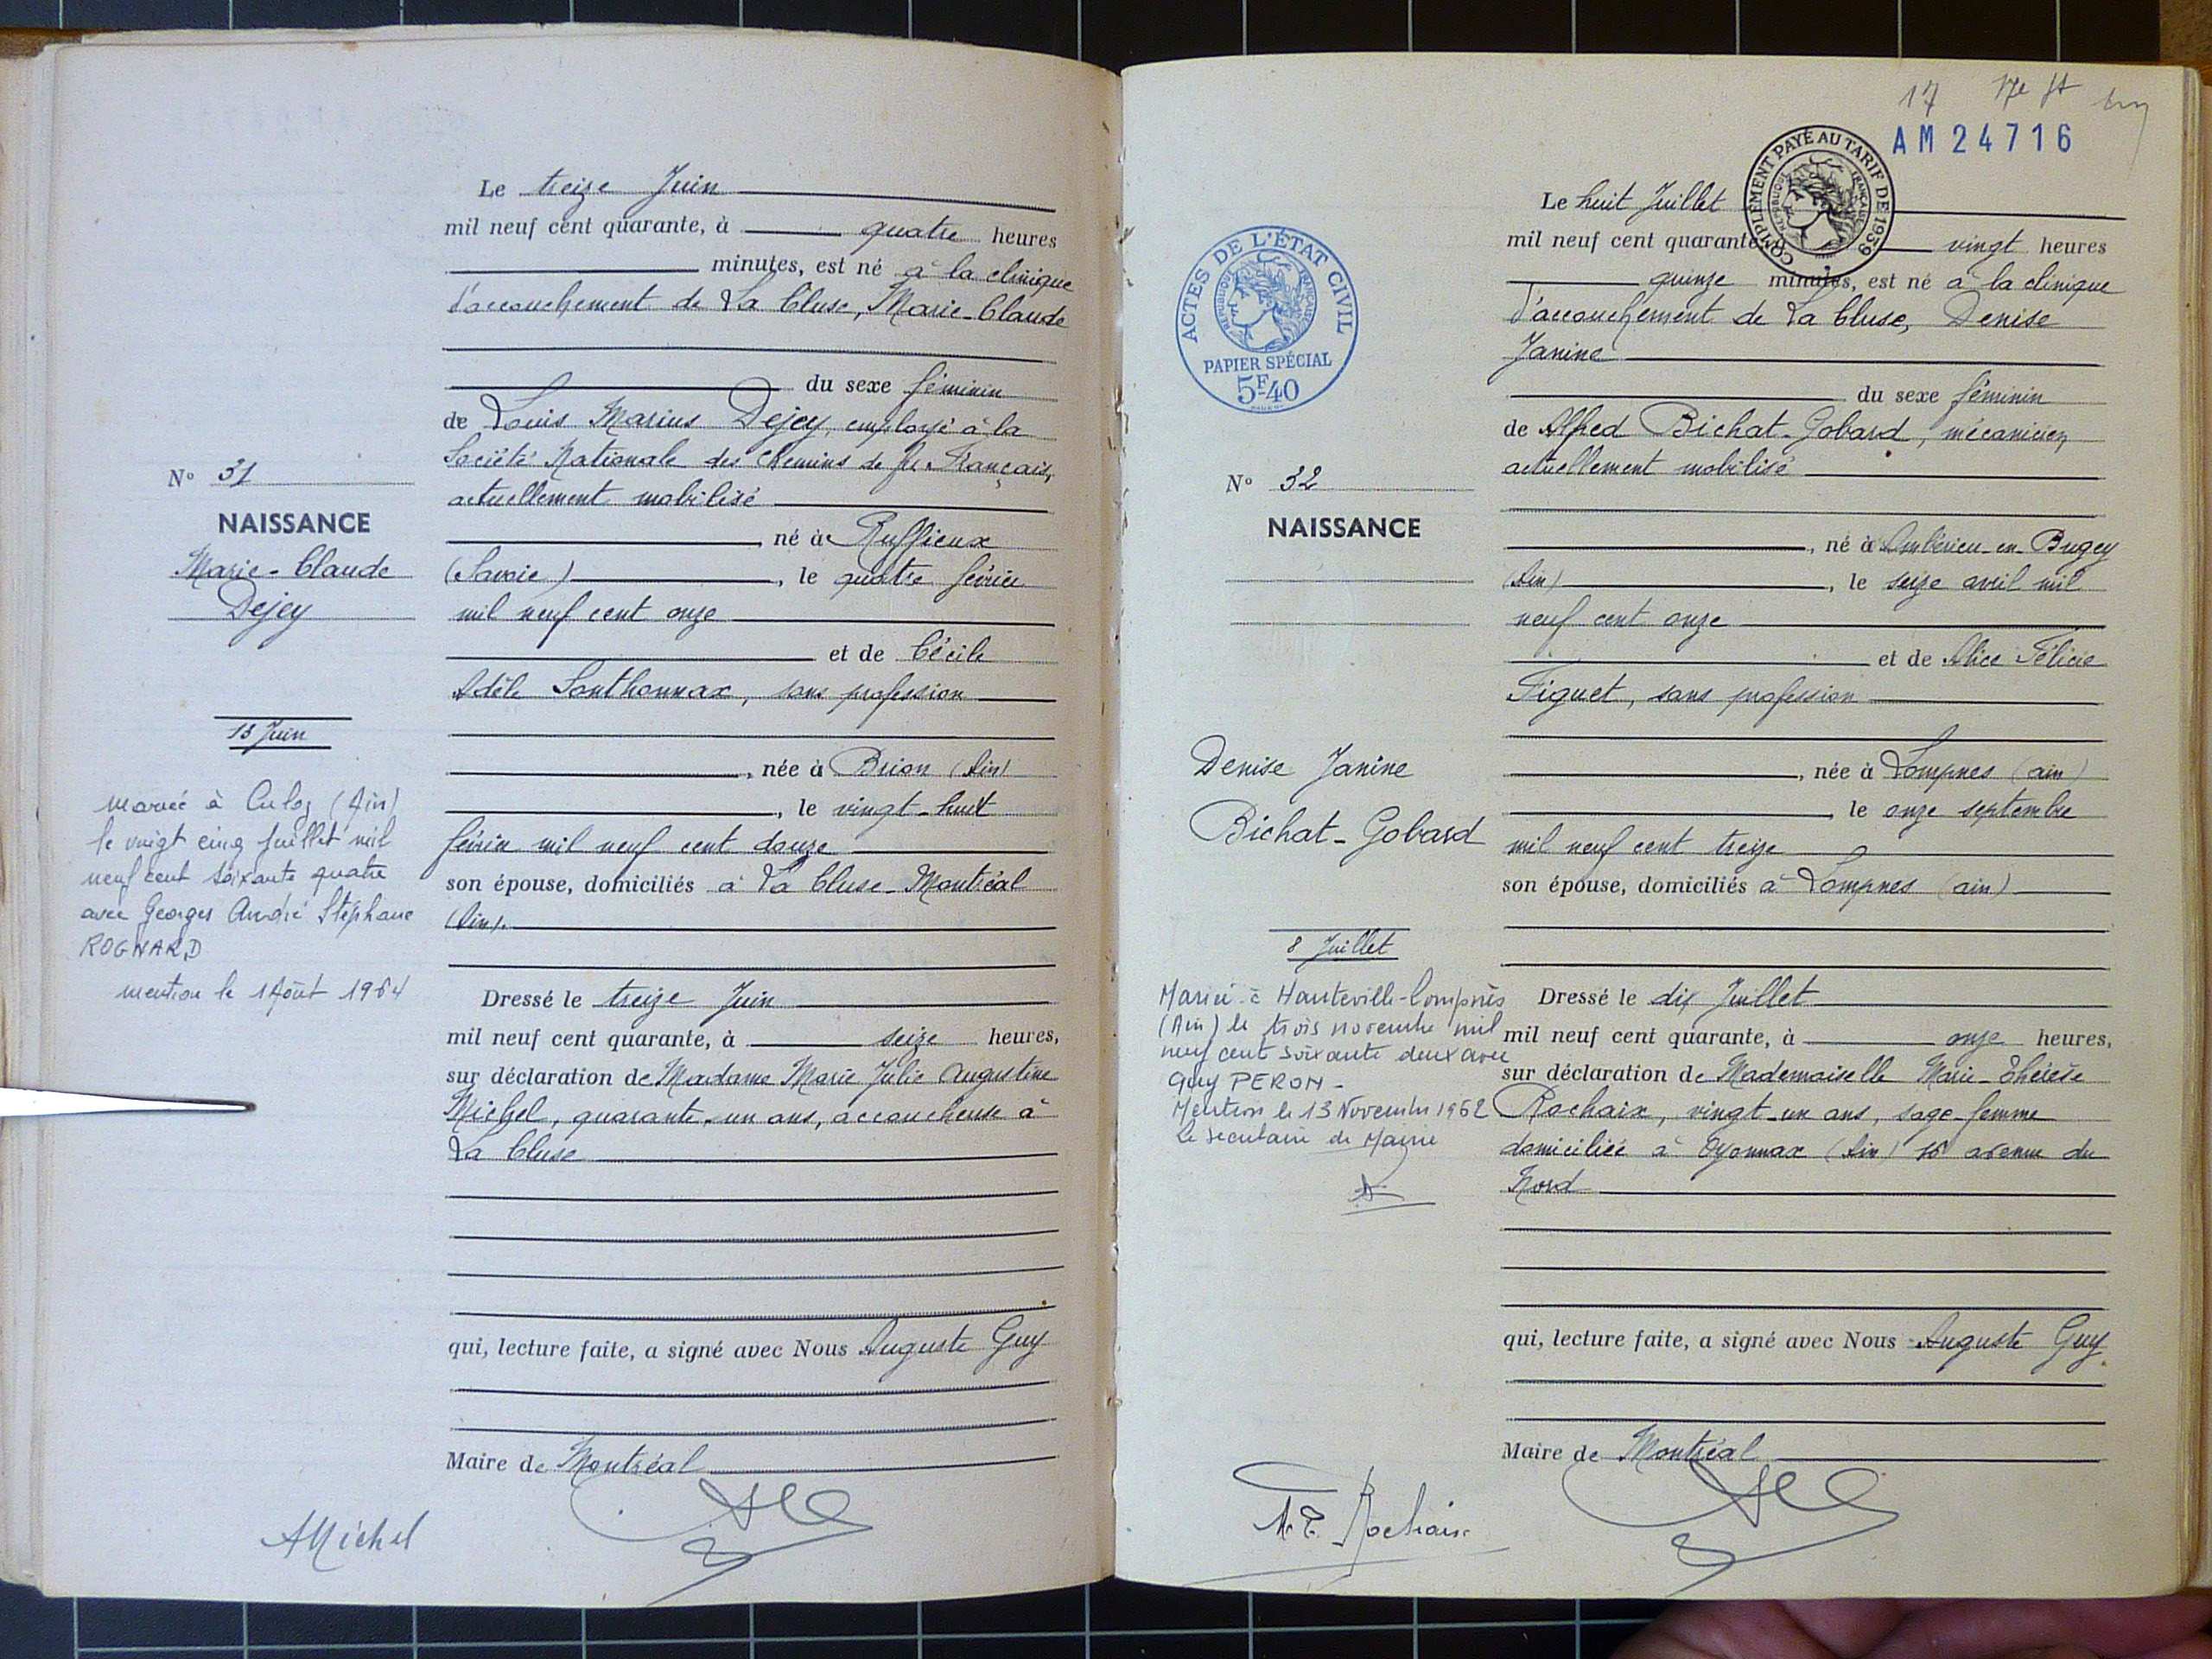 Le treize Juin
mil neuf cent quarante, à quatre heures
minutes, est né à la clinique
d'accouchement de La Cluse, Marie-Claude
du sexe féminin
de Louis Marius Dejey, employé à la
Société Nationale des Chemins de fer Français,
actuellement mobilisé
, né à Ruffieux
(Savoie), le quatre février
mil neuf cent onze
et de Cécile
Adèle Santhonnax, sans profession
, née à Brion (Ain)
, le vingt-huit
février mil neuf cent douze
son épouse, domiciliés à La Cluse-Montréal
(Ain).
Dressé le treize Juin
mil neuf cent quarante, à seize heures,
sur déclaration de Madame Marie Julie Augustine
Michel, quarante-un ans, accoucheuse à
La Cluse
qui, lecture faite, a signé avec Nous Auguste Guy
Maire de Montréal
N° 31
NAISSANCE
Marie-Claude
Dejey
13 Juin
mariée à Culoz (Ain)
le vingt cinq juillet mil
neuf cent soixante quatre
avec Georges André Stéphane
ROGNARD
mention le 1 Août 1964
AMichel
17
AM 24716
COMPLÉMENT PAYÉ AU TARIF DE 1939
RÉPUBLIQUE FRANÇAISE
ACTES DE L'ÉTAT CIVIL
RÉPUBLIQUE FRANÇAISE
PAPIER SPÉCIAL
5F40
Le huit Juillet
mil neuf cent quarante, à vingt heures
quinze minutes, est né à la clinique
d'accouchement de La Cluse, Denise
Janine
du sexe féminin
de Alfred Bichat-Gobard, mécanicien,
actuellement mobilisé
, né à Ambérieu-en-Bugey
(Ain), le seize avril mil
neuf cent onze
et de Alice Félicie
Figuet, sans profession
, née à Lompnes (ain)
, le onze septembre
mil neuf cent treize
son épouse, domiciliés à Lompnes (ain)
Dressé le dix Juillet
mil neuf cent quarante, à onze heures,
sur déclaration de Mademoiselle Marie-Thérèse
Rochaix, vingt-un ans, sage-femme
domiciliée à Oyonnax (Ain) avenue du
Nord
qui, lecture faite, a signé avec Nous Auguste Guy
Maire de Montréal
N° 32
NAISSANCE
Denise Janine
Bichat-Gobard
8 Juillet
Mariée à Hauteville-Lompnès
(Ain) le trois novembre mil
neuf cent soixante deux avec
Guy PERON -
Mention le 13 Novembre 1962
Le secrétaire de Mairie
M. T. Rochaix